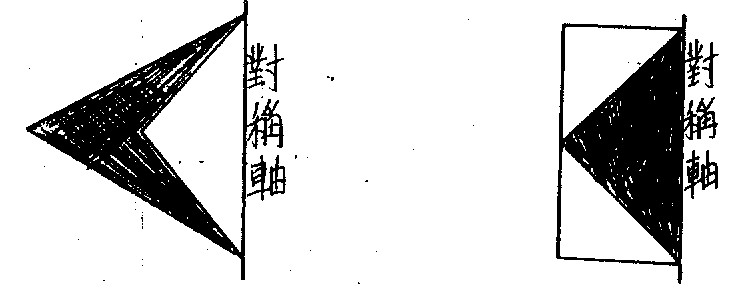 對稱軸
對稱軸